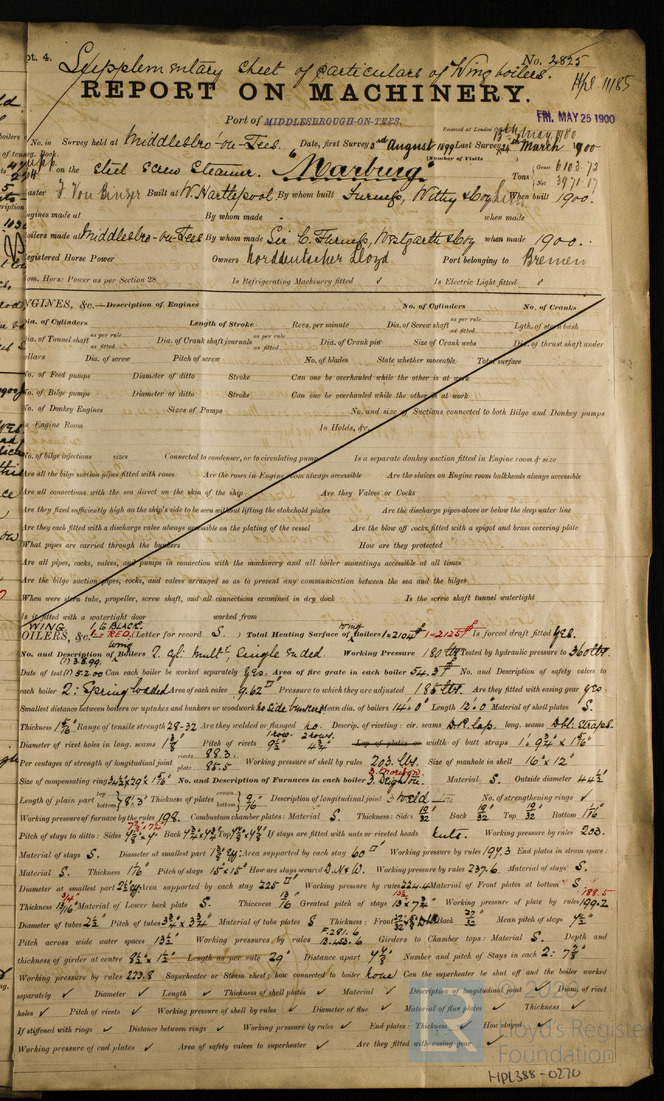 pt. 4.
Supplementary sheet of particulars of Wing boilers.
No. 2825
Hpl. 11185
REPORT ON MACHINERY.
Port of MIDDLESBROUGH-ON-TEES.
FRI. MAY 25 1900
Received at London
No. in Survey held at Middlesbro'-on-Tees. Date, first Survey 3rd August 1899 Last Survey March 1900
(Number of Visits
on the Steel Screw Steamer. "Marburg" Tons Gross 6103.72 Net 3971.17
Master F. Von Binzer Built at W. Hartlepool By whom built Furness, Withy & Coy When built 1900.
Engines made at By whom made when made
Boilers made at Middlesbro-on-Tees By whom made Sir C. Furness, Westgarth & Coy when made 1900.
Registered Horse Power Owners Norddeutscher Lloyd Port belonging to Bremen
Nom. Horse Power as per Section 28 Is Refrigerating Machinery fitted ✓ Is Electric Light fitted ✓
ENGINES, &c.—Description of Engines No. of Cylinders No. of Cranks
Dia. of Cylinders Length of Stroke Revs. per minute Dia. of Screw shaft as per rule as fitted Lgth. of stern bush
Dia. of Tunnel shaft as per rule as fitted Dia. of Crank shaft journals as per rule as fitted Dia. of Crank pin Size of Crank webs Dia. of thrust shaft under
collars Dia. of screw Pitch of screw No. of blades State whether moveable Total surface
No. of Feed pumps Diameter of ditto Stroke Can one be overhauled while the other is at work
No. of Bilge pumps Diameter of ditto Stroke Can one be overhauled while the other is at work
No. of Donkey Engines Sizes of Pumps No. and size of Suctions connected to both Bilge and Donkey pumps
In Engine Room In Holds, &c.
No. of bilge injections sizes Connected to condenser, or to circulating pump Is a separate donkey suction fitted in Engine room & size
Are all the bilge suction pipes fitted with roses Are the roses in Engine room always accessible Are the sluices on Engine room bulkheads always accessible
Are all connections with the sea direct on the skin of the ship Are they Valves or Cocks
Are they fixed sufficiently high on the ship's side to be seen without lifting the stokehold plates Are the discharge pipes above or below the deep water line
Are they each fitted with a discharge valve always accessible on the plating of the vessel Are the blow off cocks fitted with a spigot and brass covering plate
What pipes are carried through the bunkers How are they protected
Are all pipes, cocks, valves, and pumps in connection with the machinery and all boiler mountings accessible at all times
Are the bilge suction pipes, cocks, and valves arranged so as to prevent any communication between the sea and the bilges
When were stern tube, propeller, screw shaft, and all connections examined in dry dock Is the screw shaft tunnel watertight
Is it fitted with a watertight door worked from
WING BOILERS, &c. 1 G BLACK. 1 RED. (Letter for record S. ) Total Heating Surface of Wing Boilers 1=2104 1-2125 Is forced draft fitted yes.
No. and Description of Wing Boilers 2. Cyl. Mult. Single ended Working Pressure 180 lbs Tested by hydraulic pressure to 360 lbs.
Date of test Can each boiler be worked separately yes. Area of fire grate in each boiler 54.3 No. and Description of safety valves to
each boiler 2: Spring loaded Area of each valve 9.62 Pressure to which they are adjusted 185 lbs. Are they fitted with easing gear yes.
Smallest distance between boilers or uptakes and bunkers or woodwork no side bunkers Mean dia. of boilers 14'.0" Length 12'.0" Material of shell plates S.
Thickness 1 5/16 Range of tensile strength 28-32 Are they welded or flanged no Descrip. of riveting: cir. seams D.R. lap. long. seams Dbl. straps.
Diameter of rivet holes in long. seams 1 3/8 Pitch of rivets Lap of plates or width of butt straps
Per centages of strength of longitudinal joint rivets 88.3. plate 85.5 Working pressure of shell by rules 203. lbs. Size of manhole in shell 16" x 12"
Size of compensating ring No. and Description of Furnaces in each boiler 3. Morison Material S. Outside diameter 44 1/2
Length of plain part top bottom Thickness of plates crown bottom 9/16 Description of longitudinal joint weld No. of strengthening rings ✓
Working pressure of furnace by the rules 198. Combustion chamber plates: Material S. Thickness: Sides 19/32 Back 19/32 Top 19/32 Bottom
Pitch of stays to ditto: Sides Back Top If stays are fitted with nuts or riveted heads nuts. Working pressure by rules 203.
Material of stays S. Diameter at smallest part Area supported by each stay 60 Working pressure by rules 194.3 End plates in steam space:
Material S. Thickness Pitch of stays 15" x 15" How are stays secured D.N & W. Working pressure by rules 237.6. Material of stays S.
Diameter at smallest part Area supported by each stay 225 Working pressure by rules 224.4 Material of Front plates at bottom S.
Thickness Material of Lower back plate S. Thickness Greatest pitch of stays Working pressure of plate by rules 199.2 188.5
Diameter of tubes 2 1/2 Pitch of tubes 3 3/4 x 3 3/4 Material of tube plates S. Thickness: Front Back 27/32 Mean pitch of stays 7 1/2
Pitch across wide water spaces 13 1/2 Working pressures by rules F.281.6 B.Girders to Chamber tops: Material S. Depth and
thickness of girder at centre 8 1/2 x 1 1/2 Length as per rule 29" Distance apart Number and pitch of Stays in each 2: 7 3/8
Working pressure by rules 223.8 Superheater or Steam chest; how connected to boiler none Can the superheater be shut off and the boiler worked
separately ✓ Diameter ✓ Length ✓ Thickness of shell plates ✓ Material ✓ Description of longitudinal joint ✓ Diam. of rivet
holes ✓ Pitch of rivets ✓ Working pressure of shell by rules ✓ Diameter of flue ✓ Material of flue plates ✓ Thickness ✓
If stiffened with rings ✓ Distance between rings ✓ Working pressure by rules ✓ End plates: Thickness ✓ How stayed
Working pressure of end plates ✓ Area of safety valves to superheater ✓ Are they fitted with easing gear ✓
LR
© 2020
Lloyd's Register
Foundation
HPL388-0270